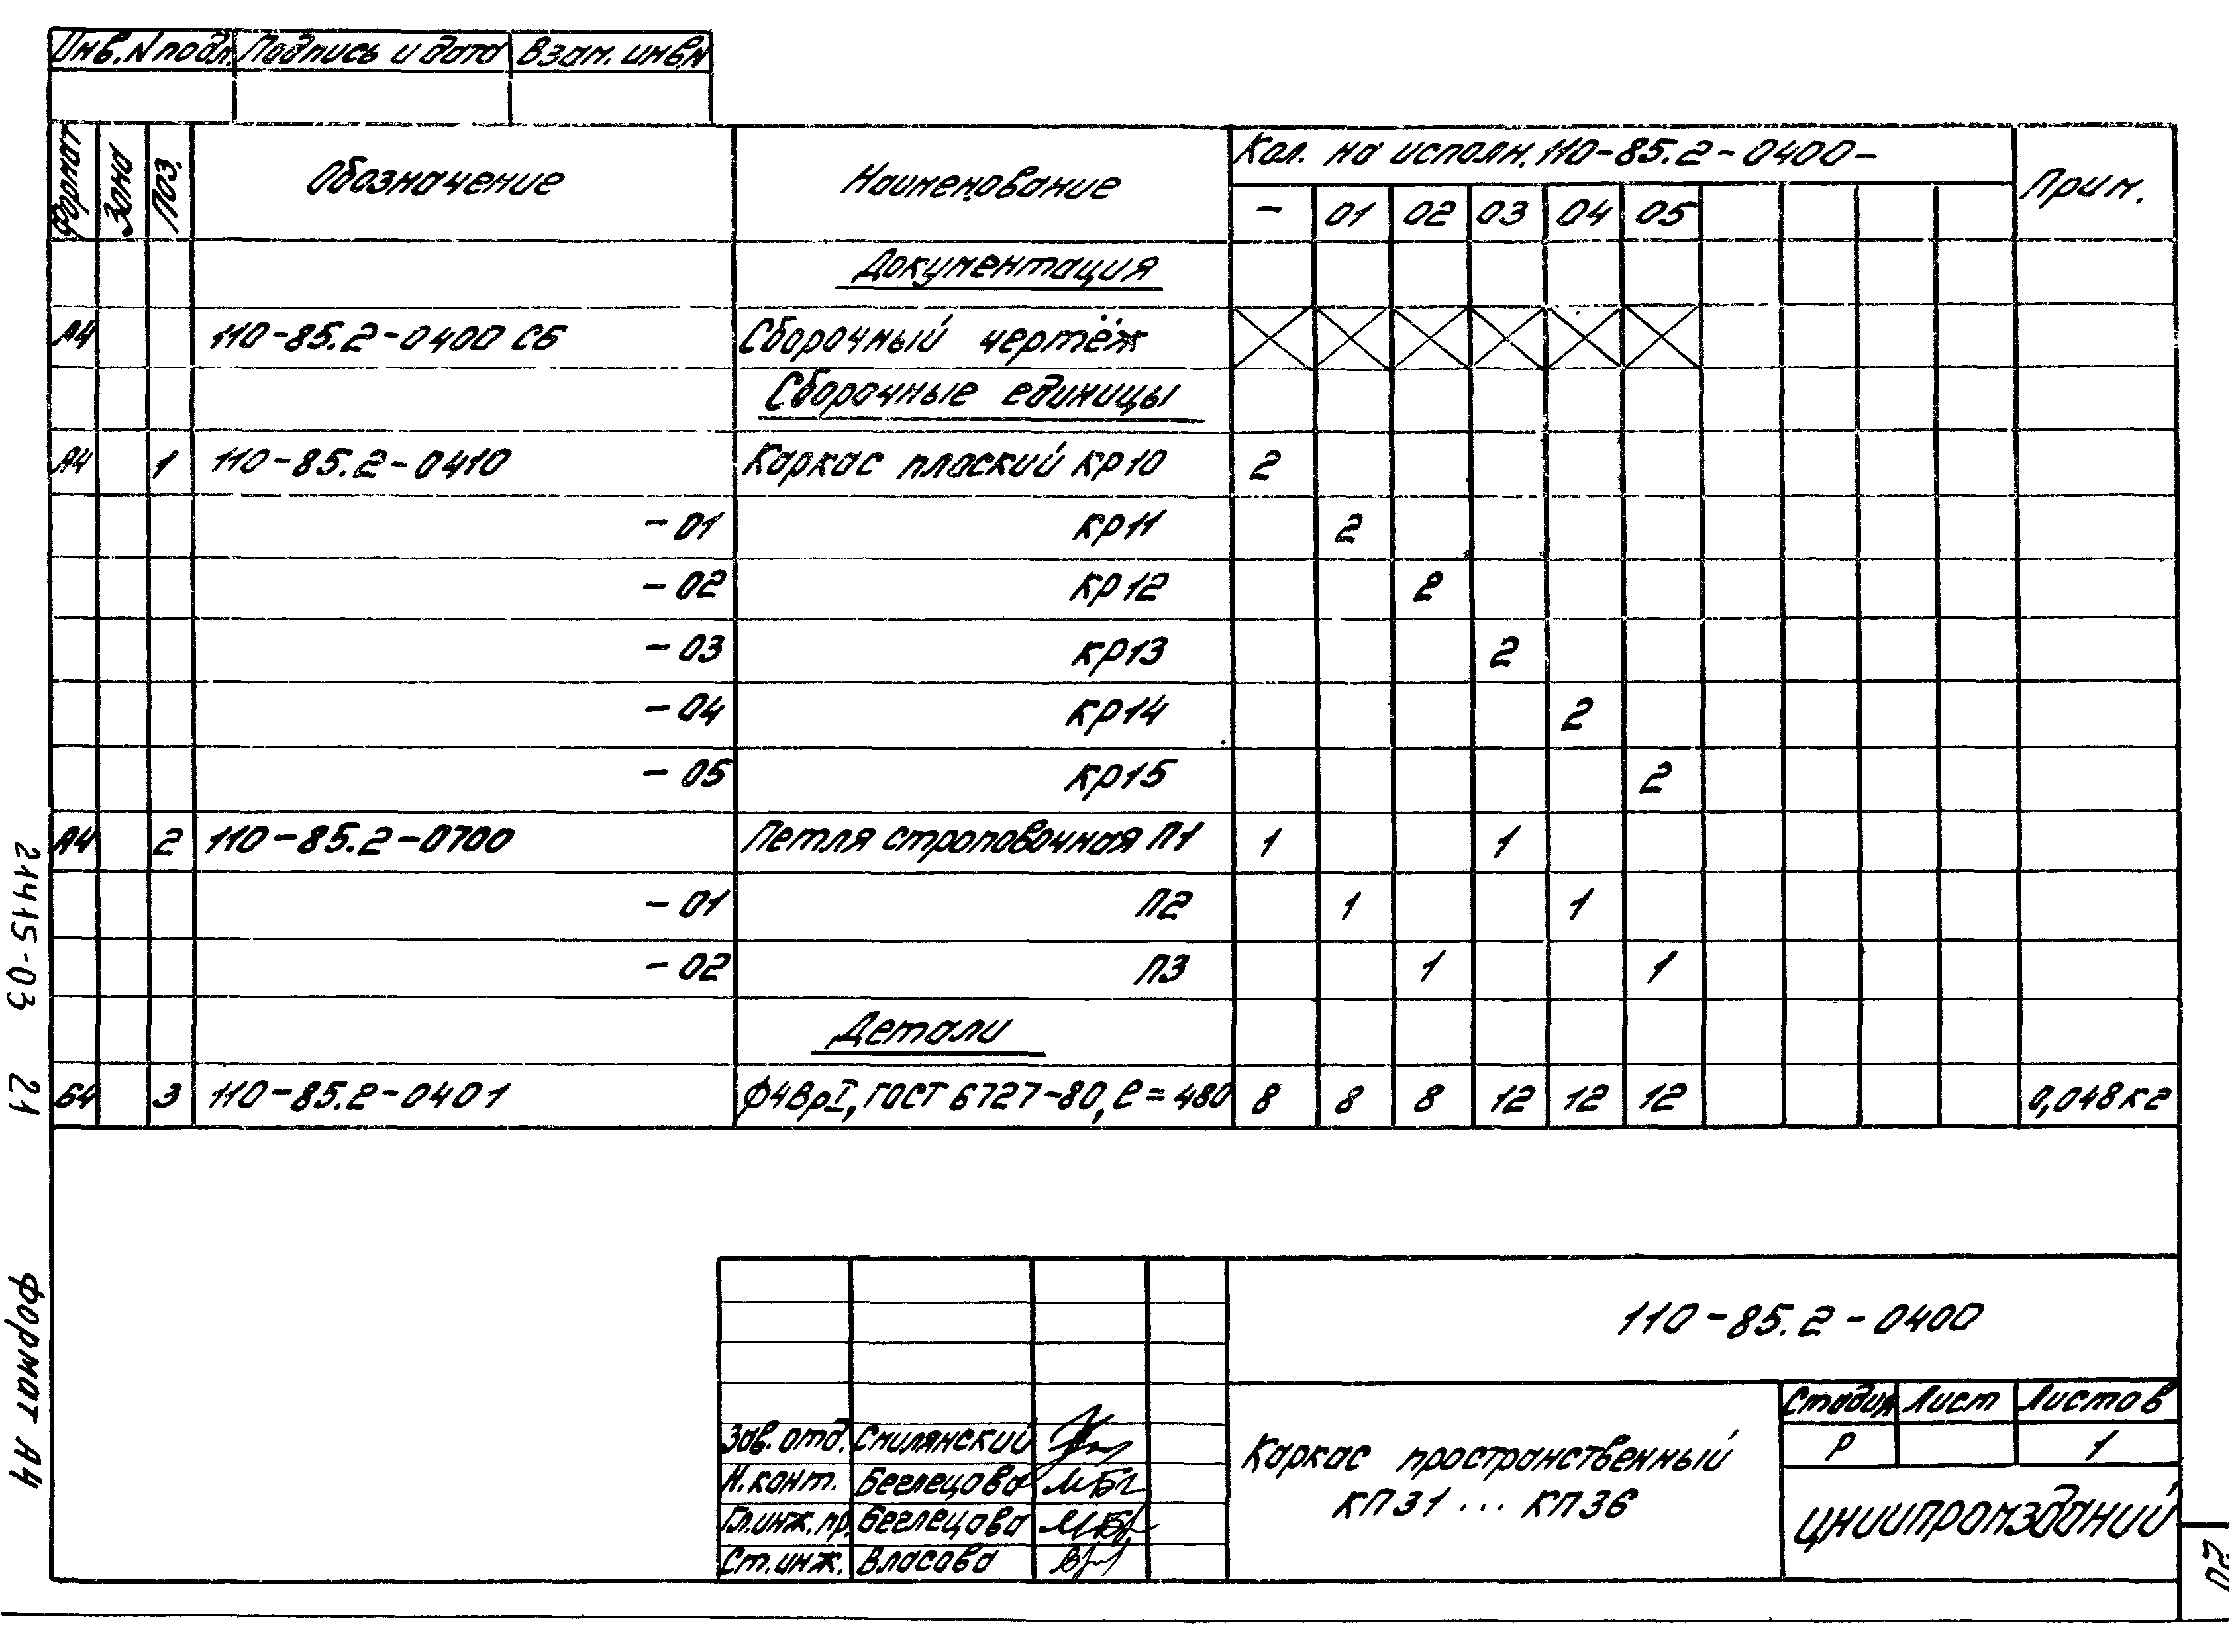 Инв.N подл. Подпись и дата Взам. инв.N
Формат Зона Поз. Обозначение Наименование Кол. на исполн. 110-85.2-0400- Прим.
- 01 02 03 04 05
Документация
А4 110-85.2-0400 СБ Сборочный чертёж
Сборочные единицы
А4 1 110-85.2-0410 Каркас плоский КР10 2
- 01 КР11 2
- 02 КР12 2
- 03 КР13 2
- 04 КР14 2
- 05 КР15 2
А4 2 110-85.2-0700 Петля строповочная П1 1 1
- 01 П2 1 1
- 02 П3 1 1
Детали
Б4 3 110-85.2-0401 Ф4ВрI, ГОСТ 6727-80, ℓ=480 8 8 8 12 12 12 0,048 кг
110-85.2-0400
Зав. отд. Смилянский
Н. конт. Беглецова
Гл. инж. пр. Беглецова
Ст. инж. Власова
Каркас пространственный
КП31 ... КП36
Стадия Лист Листов
Р 1
ЦНИИПРОМЗДАНИЙ
21415-03 21
Формат А4
20